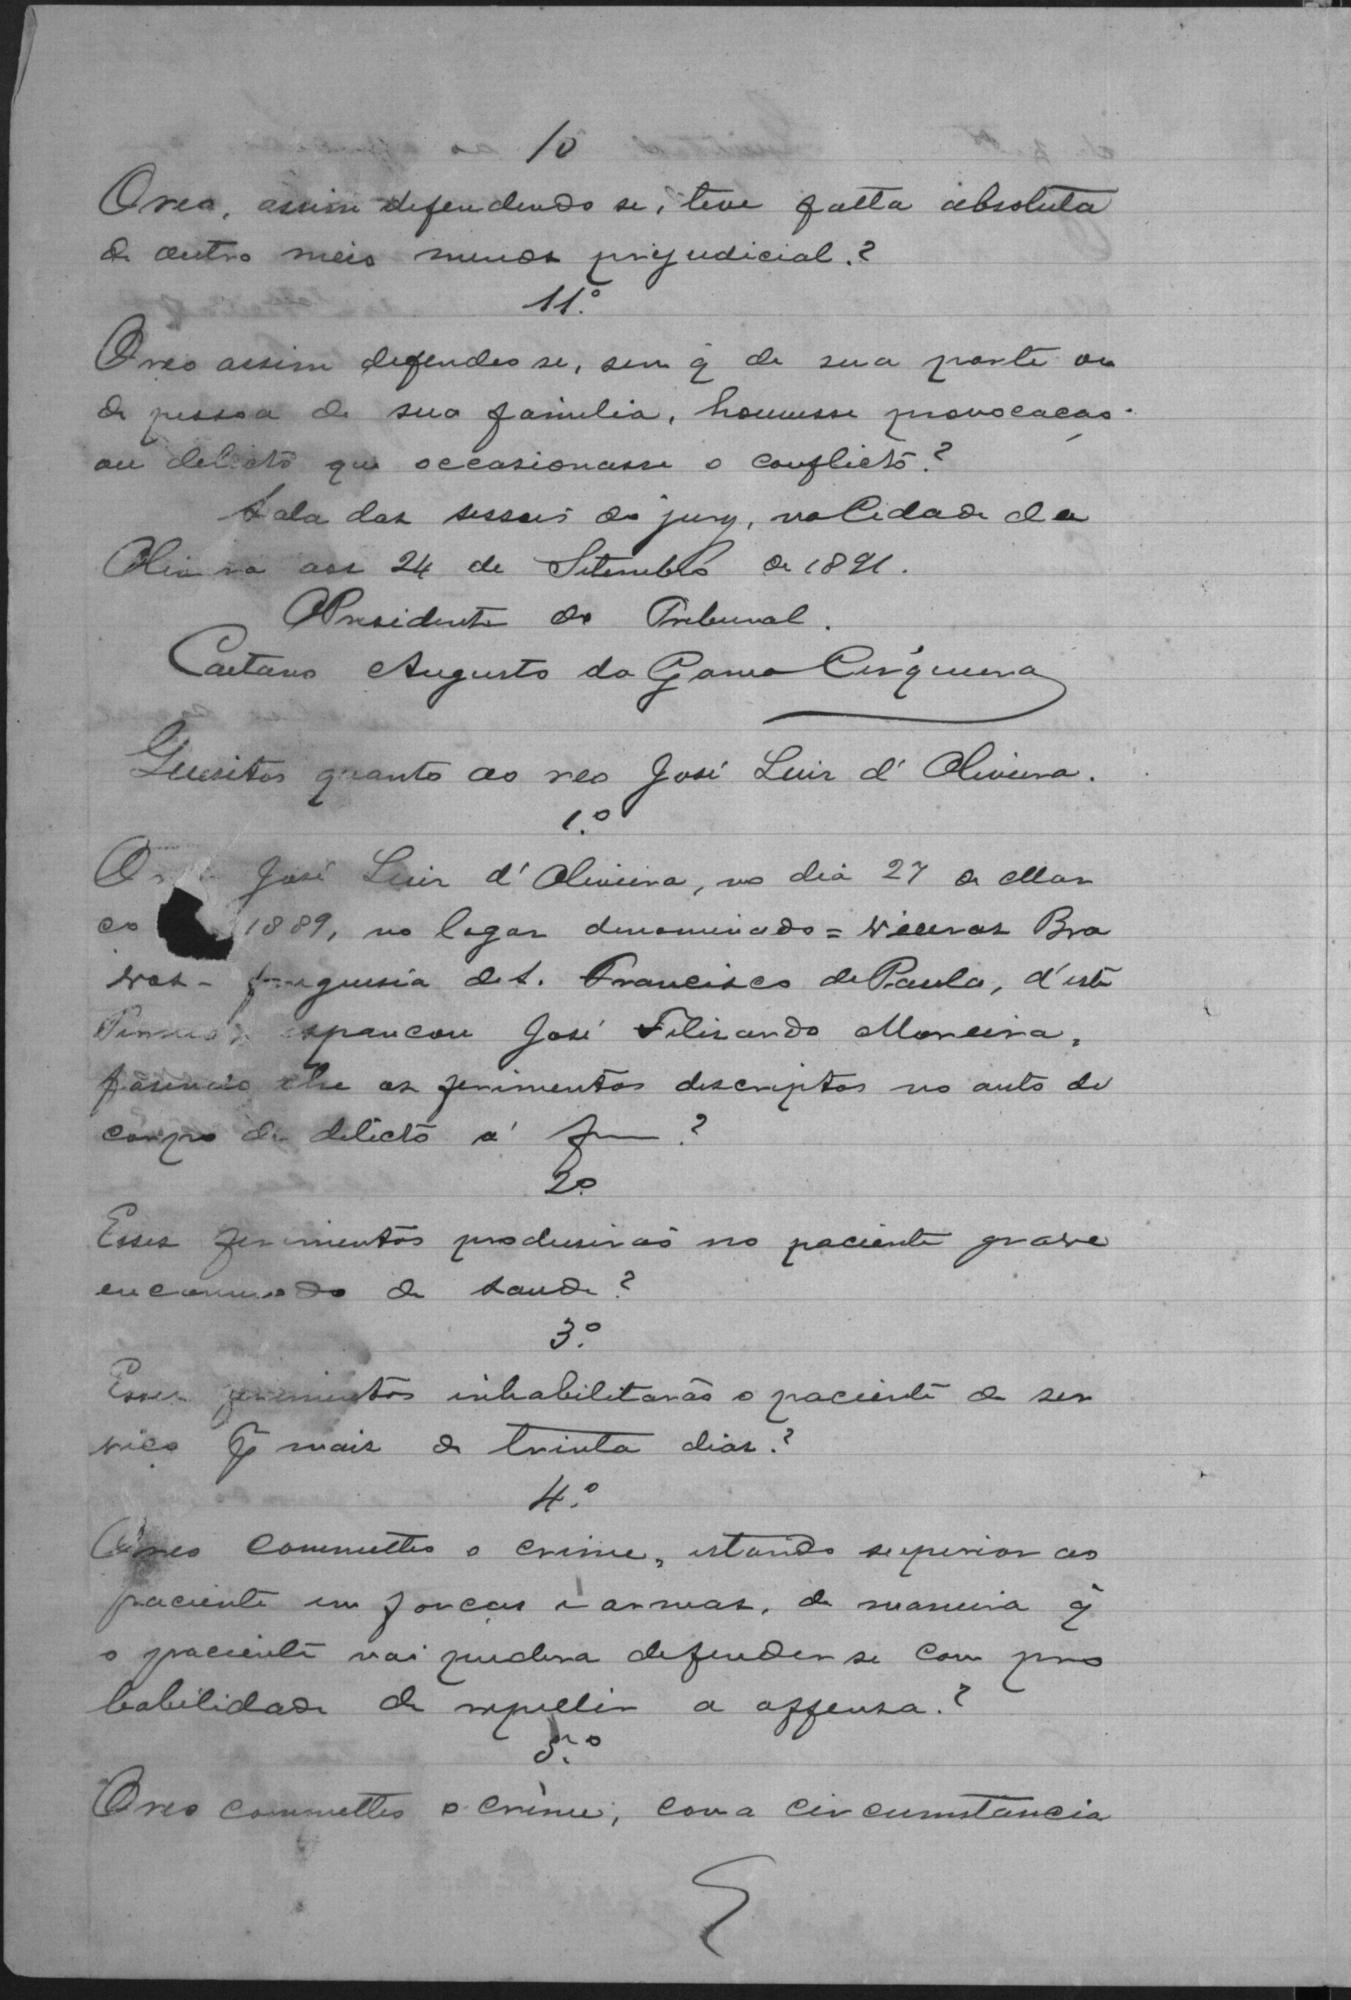 10
O reo, assim defendendo se, teve falta absoluta
de outro meio menos prejudicial?
11.º
O reo assim defendeo se, sem q̃ de sua parte ou
de pessoa de sua familia, houvesse provocação
ou delicto que occasionasse o conflicto?
Sala das sessões do jury, na Cidade da
Oliveira aos 24 de Setembro de 1891.
O Presidente do Tribunal.
Caetano Augusto da Gama Cerqueira
Quesitos quanto ao reo José Luiz d' Oliveira.
1.º
O José Luiz d' Oliveira, no dia 27 de Mar
ço 1889, no logar denominado = Vieiras Bra
vos - freguesia de S. Francisco de Paula, d'este
Termo, espancou José Felisardo Moreira,
fasendo lhe os ferimentos descriptos no auto de
corpo de delicto a' f ?
2º
Esses ferimentos produsirão no paciente grave
encommodo de saude?
3.º
Esses ferimentos inhabilitarão o paciente de ser
viço p̃ mais de trinta dias?
4.º
O reo commetteo o crime, estando superior ao
paciente em forças e armas, de maneira q̃
o paciente não pudera defender se com pro
babilidade de repellir a offensa?
5.º
O reo commetteo o crime, com a circumstancia